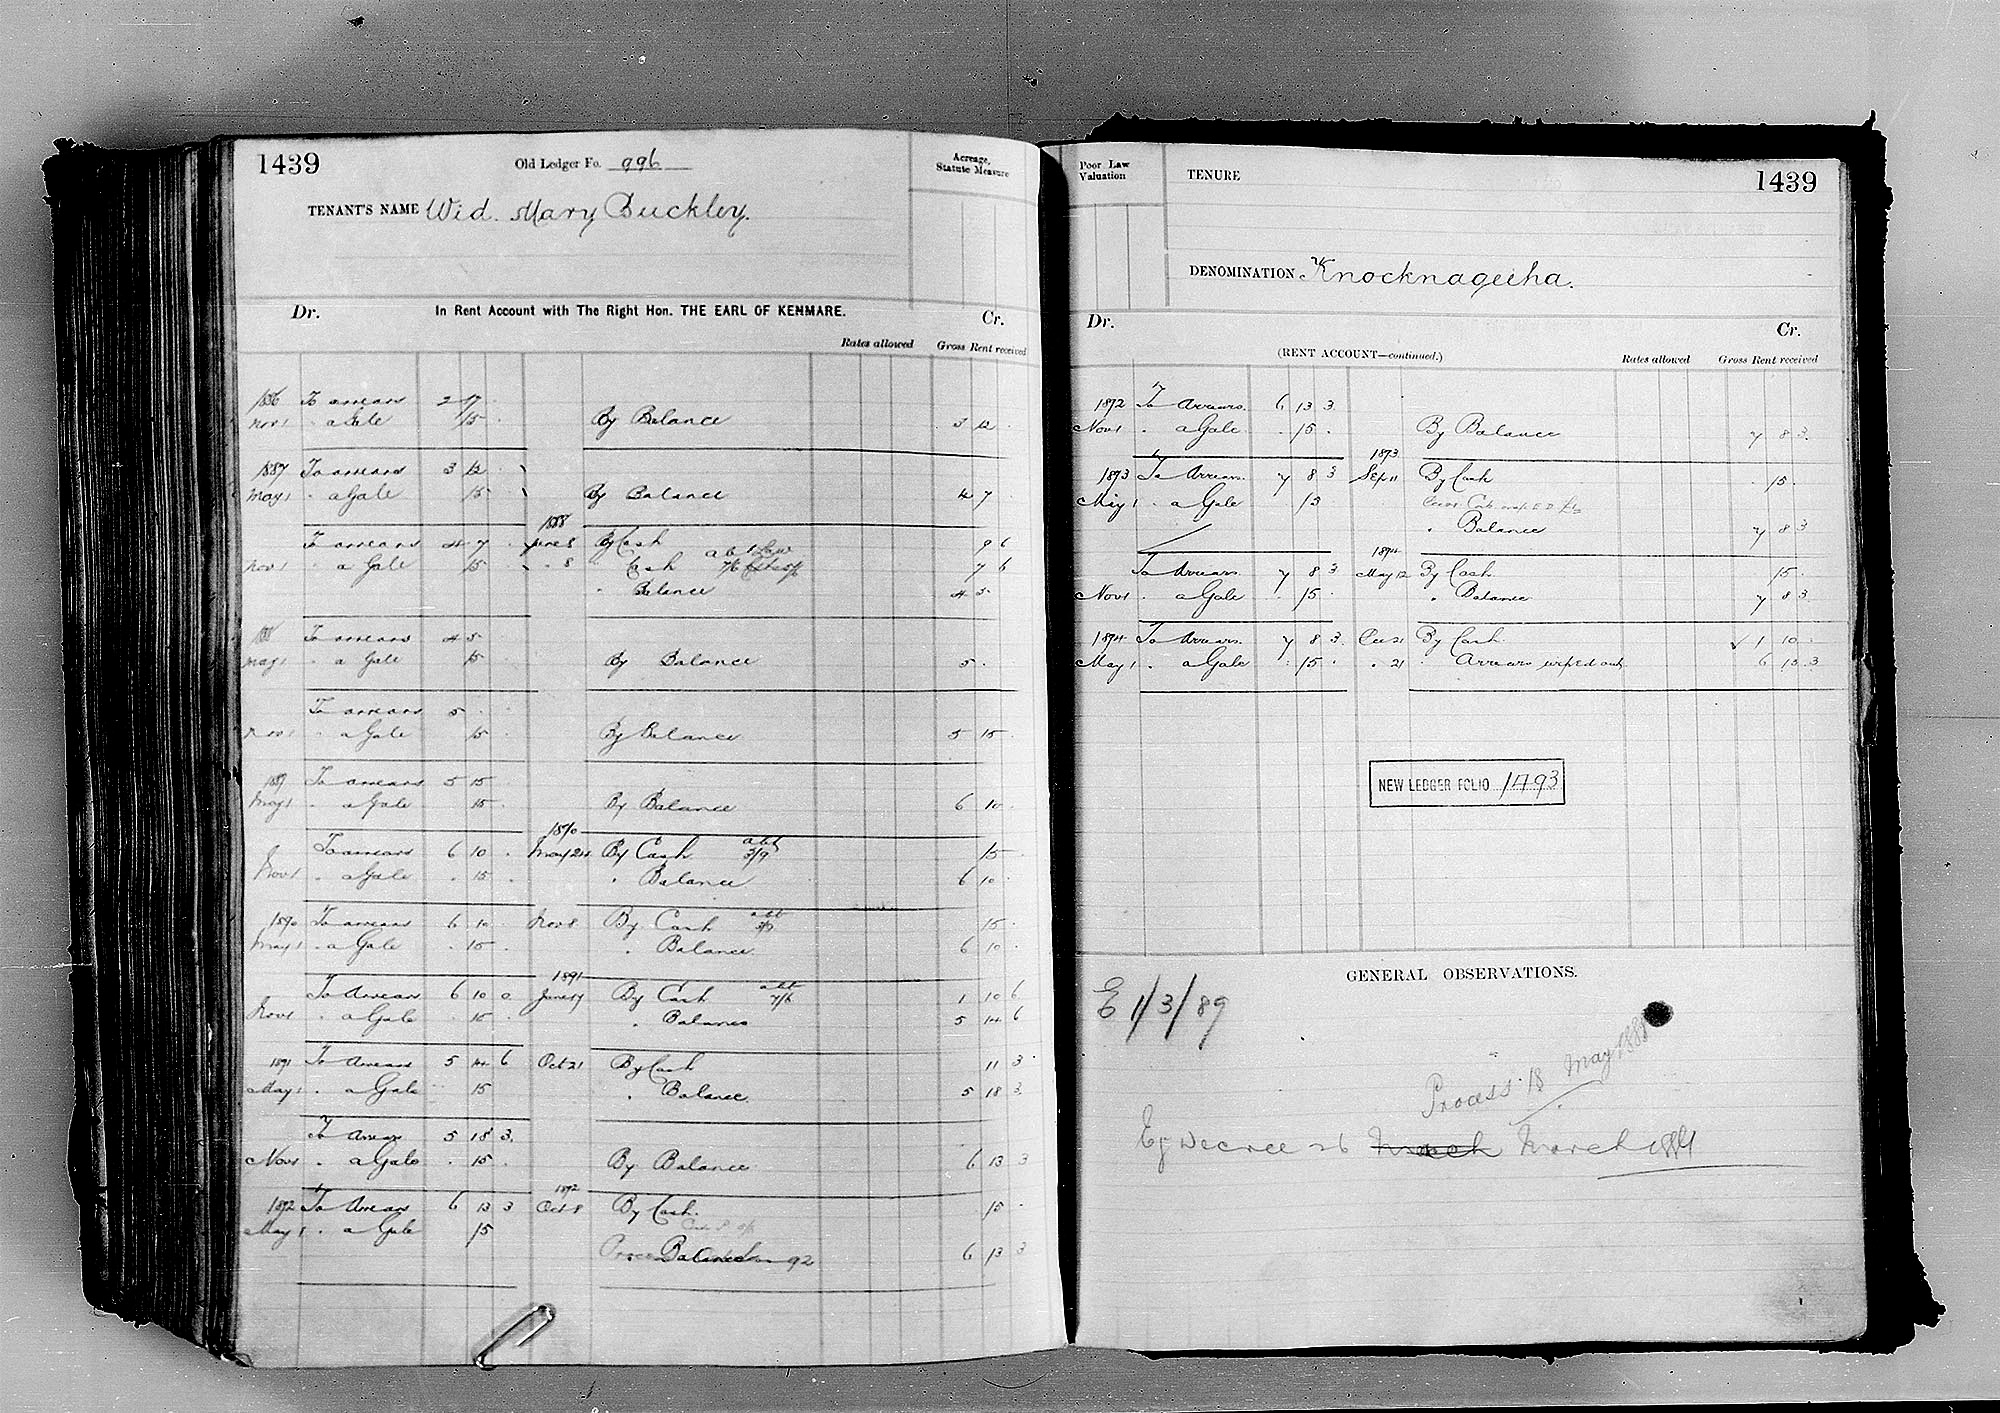 1439
Old Ledger Fo. 996
Acreage, Statute Measure
TENANT'S NAME Wid. Mary Buckley.
Dr. In Rent Account with The Right Hon. THE EARL OF KENMARE. Cr.
Rates allowed Gross Rent received
1886 To arrears 2 17 .
Nov 1 . a Gale 15 . By Balance 3 12 .
1887 To arrears 3 12 .
May 1 . a Gale 15 . By Balance 4 7 .
1888
To arrears 4 7 . June 8 By Cash 9 6
Nov 1 . a Gale 15 . . 8 " Cash 7 6
" Balance 4 5 .
To arrears 4 5
May 1 . a Gale 15 By Balance 5 .
To arrears 5 .
Nov 1 . a Gale 15 . By Balance 5 15 .
To arrears 5 15
May 1 . a Gale 15 . By Balance 6 10 .
1890
To arrears 6 10 . May 24 By Cash abt 3/9 15 .
Nov 1 . a Gale . 15 . " Balance 6 10 .
1890 To arrears 6 10 . Nov 8 By Cash abt 15 .
May 1 . a Gale . 15 . " Balance 6 10 .
1891
To Arrears 6 10 0 June 17 By Cash abt 7/6 1 10 6
Nov 1 . a Gale . 15 . " Balance 5 14 6
1891 To Arrears 5 14 6 Oct 21 By Cash 11 3
May 1 . a Gale 15 " Balance 5 18 3
To Arrears 5 18 3
Nov 1 . a Gale . 15 . By Balance 6 13 3
1892
1892 To Arrears 6 13 3 Oct 8 By Cash 15 .
May 1 . a Gale 15
Balance 92 6 13 3
Poor Law Valuation
TENURE
1439
DENOMINATION Knocknageeha.
Dr. Cr.
(RENT ACCOUNT—continued.) Rates allowed Gross Rent received
1892 To Arrears 6 13 3
Nov 1 . a Gale . 15 . By Balance 7 8 3
1893
1893 To Arrears 7 8 3 Sep 11 By Cash 15 .
May 1 . a Gale 15
" Balance 7 8 3
1894
To Arrears 7 8 3 May 12 By Cash 15 .
Nov 1 . a Gale . 15 . " Balance 7 8 3
1894 To Arrears 7 8 3 Dec 21 By Cash 1 10 .
May 1 . a Gale . 15 . " 21 . Arrears wiped out 6 13 3
NEW LEDGER FOLIO 1493
GENERAL OBSERVATIONS.
E 1/3/89
Process 18 May 1888
Ej Decree 26 March March 1889